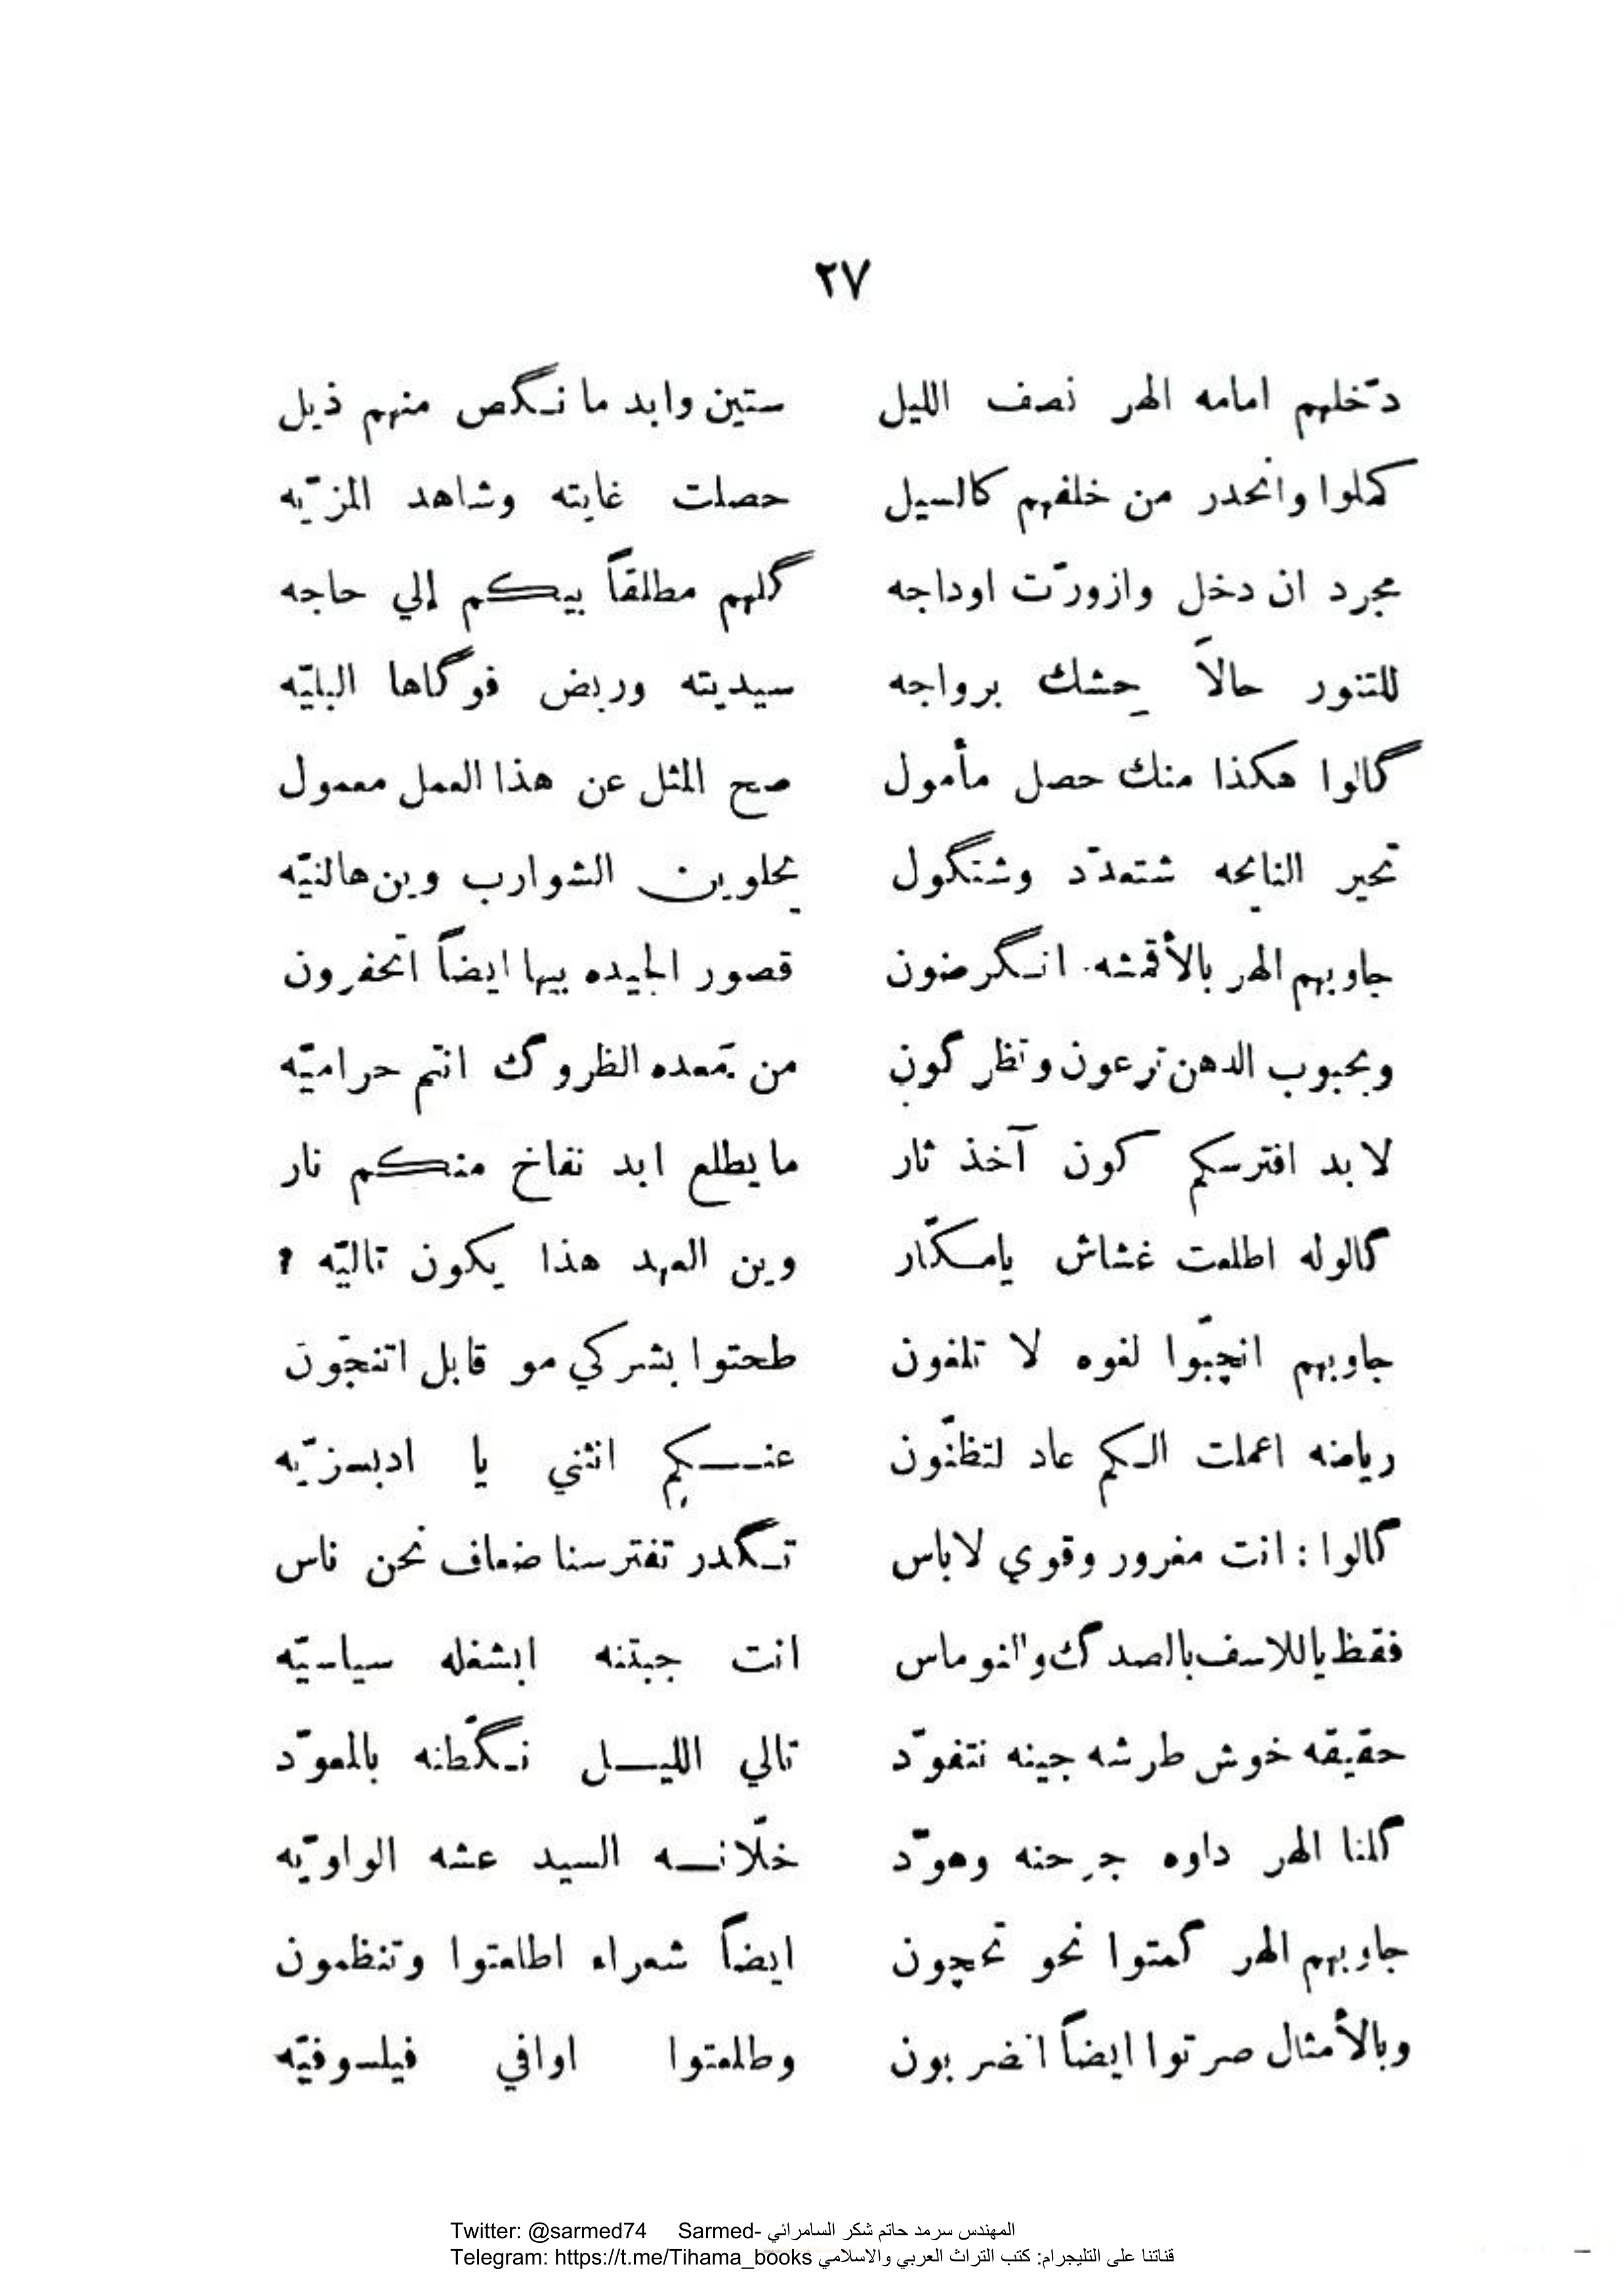 ٢٧
دخّلهم امامه الهر نصف الليل ستين وابد ما نـگص منهم ذيل
كملوا وانحدر من خلفهم كالسيل حصلت غايته وشاهد المزيّه
مجرد ان دخل وازورّت اوداجه گلهم مطلقاً بيكم إلي حاجه
للتنور حالاً حِشك برواجه سيديته وربض فوگاها البليّه
گالوا هكذا منك حصل مأمول صح المثل عن هذا العمل معمول
تحير النايحه شتعدّد وشتگول يحلوين الشوارب وين هالنيّه
جاوبهم الهر بالأقمشه انـگرضون قصور الجيده بيها ايضاً اتحفرون
وبحبوب الدهن تزعون وتظرگون من تمعده الظروگ انتم حراميّه
لا بد افترسكم كون آخذ ثار ما يطلع ابد نفاخ منكم نار
گالوله اطلعت غشاش يامـكّار وين العهد هذا يكون تاليّه ؟
جاوبهم انچبّوا لغوه لا تلغون طحتوا بشركي مو قابل اتنجّون
رياضه اعملت الـكم عاد لتظنّون عنــكم انثني يا ادبسزيّه
گالوا : انت مغرور وقوي لاباس تـگدر تفترسنا ضعاف نحن ناس
فقط ياللاسف بالصدگ والنوماس انت جبتنه ابشغله سياسيّه
حقيقه خوش طرشه جينه نتفوّد تالي الليــل نـگّطنه بالمعوّد
گلنا الهر داوه جرحنه وهوّد خلّانــه السيد عشه الواويّه
جاوبهم الهر گمتوا نحو تحچون ايضاً شعراء اطلعتوا وتنظمون
وبالأمثال صرتوا ايضاً انضربون وطلعتوا اوافي فيلسوفيّه
Twitter: @sarmed74 Sarmed- المهندس سرمد حاتم شكر السامرائي
Telegram: https://t.me/Tihama_books قناتنا على التليجرام: كتب التراث العربي والاسلامي